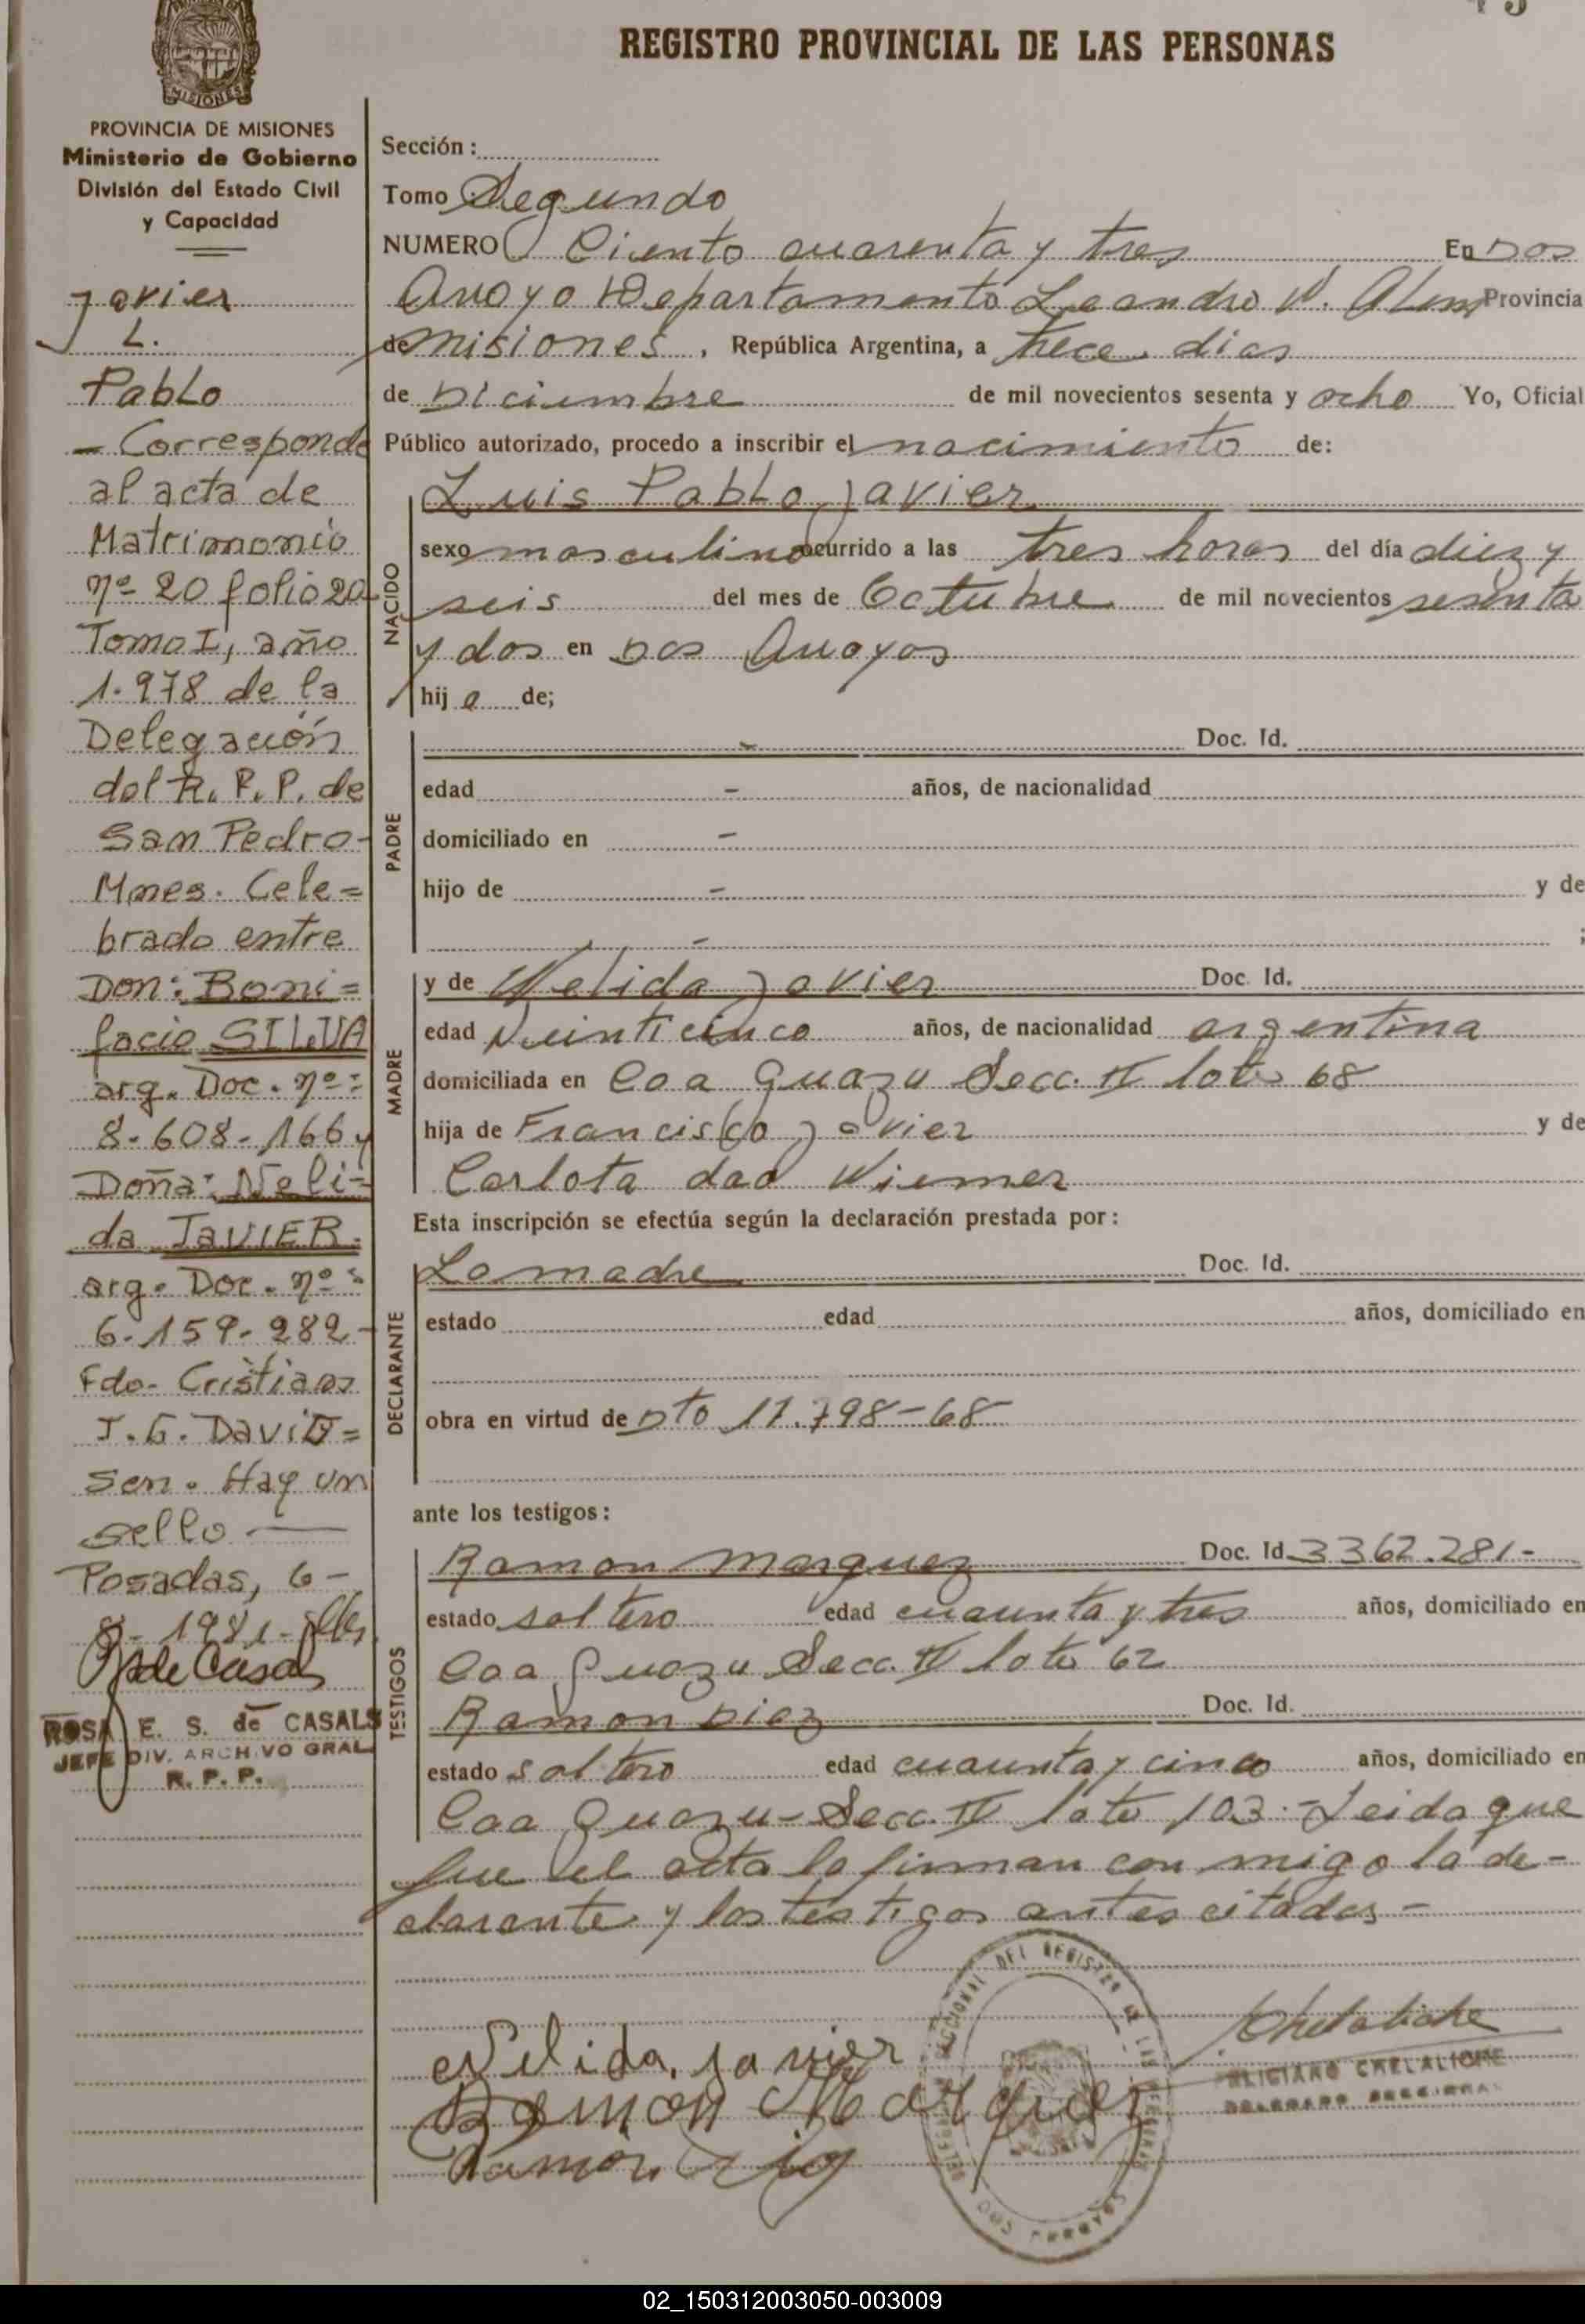 REGISTRO PROVINCIAL DE LAS PERSONAS
MISIONES
PROVINCIA DE MISIONES
Ministerio de Gobierno
División del Estado Civil
y Capacidad
Javier
L.
Pablo
- Corresponde
al acta de
Matrimonio
nº 20 folio 20
Tomo I, año
1.978 de la
Delegación
del R. P. P. de
San Pedro-
Mnes. Cele=
brado entre
Don: Boni=
facio SILVA
arg. Doc. nº:
8.608.166 y
Doña: Neli=
da JAVIER.
arg. Doc. nº:
6.159.282-
Fdo. Cristian
J. G. David=
sen. Hay un
sello —
Posadas, 6-
8-1981-
ROSA E. S. de CASALS
JEFE DIV. ARCHIVO GRAL
R. P. P.
Sección:
Tomo Segundo
NUMERO Ciento cuarenta y tres En Dos
Arroyo Departamento Leandro N. Alem Provincia
de Misiones, República Argentina, a trece dias
de Diciembre de mil novecientos sesenta y ocho Yo, Oficial
Público autorizado, procedo a inscribir el nacimiento de:
NACIDO
Luis Pablo Javier
sexo masculino ocurrido a las tres horas del día diez y
seis del mes de Octubre de mil novecientos sesenta
y dos en Dos Arroyos
hij o de;
PADRE
- Doc. Id.
edad - años, de nacionalidad
domiciliado en -
hijo de - y de
- ;
MADRE
y de Nelida Javier Doc. Id.
edad Veinticinco años, de nacionalidad argentina
domiciliada en Caa Guazu Secc. II lote 68
hija de Francisco Javier y de
Carlota dad Wiemer
Esta inscripción se efectúa según la declaración prestada por:
DECLARANTE
La madre Doc. Id.
estado edad años, domiciliado en
obra en virtud de Dto 11.798-68
ante los testigos:
TESTIGOS
Ramon Marquez Doc. Id 3362.281-
estado soltero edad cuarenta y tres años, domiciliado en
Caa Guazu Secc. II lote 62
Ramon Diez Doc. Id.
estado soltero edad cuarenta y cinco años, domiciliado en
Caa Guazu-Secc. II lote 103.-Leida que
fue el acta la firman con migo la de-
clarante y los testigos antes citados-
Nelida Javier
Ramon Marquez
Ramon
FELICIANO CHELALICHE
02_150312003050-003009